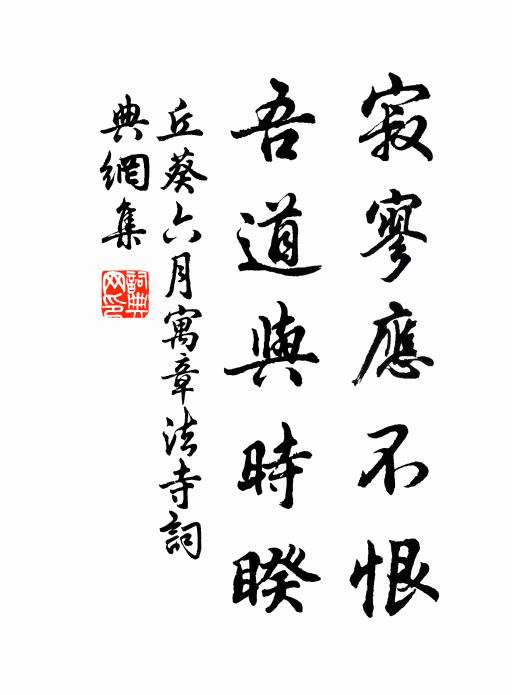 寂寥應不恨
吾道與時睽
丘葵六月寓章法寺詞
典網集
詞典
网印